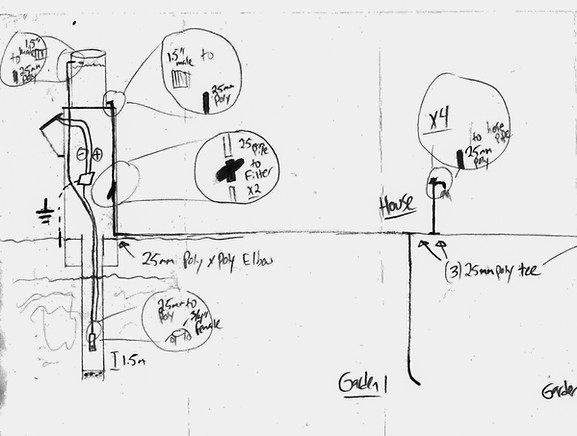 1.5"
male
to
25mm
poly
1.5" to
male
25mm
poly
25 pipe
to
Filter
x2
25mm Poly x Poly Elbow
25mm to
Poly
3/4"
Female
1.5m
x4
to hose
pipe
25mm
poly
House
(3) 25mm poly tee
Garden 1
Garden